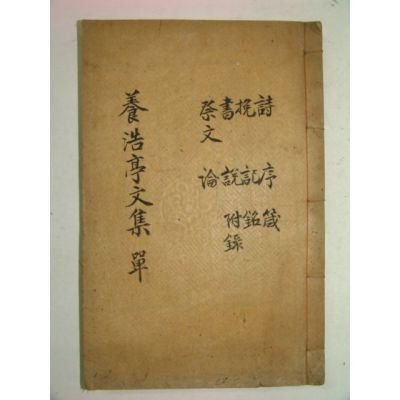 詩 序 箴
挽 記 銘
書 說 附錄
祭文 論
養浩亭文集 單